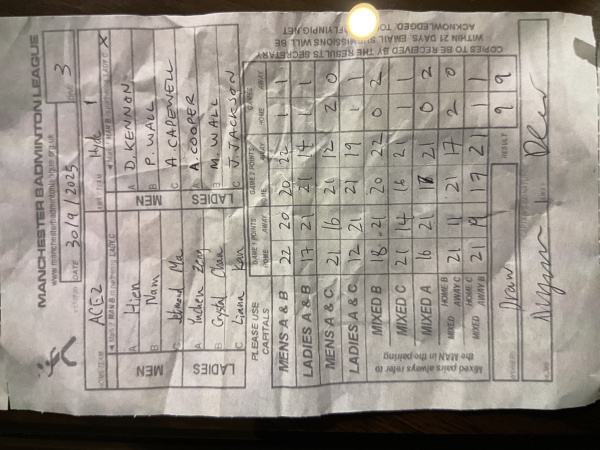 MANCHESTER BADMINTON LEAGUE
DATE 30/9/2025 3
HOME TEAM ACE2 Hyde 1
MEN A Hien A D. KENNON
B Nam B P. WALL
C Ma C A. CAPEWELL
LADIES A Yuchen Zeng A A. COOPER
B Crystal Chan B M. WALL
C Liana Kan C J. JACKSON
PLEASE USE CAPITALS GAME 1 POINTS HOME AWAY GAME 2 POINTS HOME AWAY GAMES HOME AWAY
MENS A & B 22 20 20 22 1 1
LADIES A & B 17 21 21 14 1 1
MENS A & C 21 16 21 12 2 0
LADIES A & C 12 21 21 19 1 1
MIXED B 18 21 20 22 0 2
MIXED C 21 14 16 21 1 1
MIXED A 16 21 21 0 2
MIXED HOME B AWAY C 21 11 21 17 2 0
MIXED HOME C AWAY B 21 19 17 21 1 1
Mixed pairs always refer to
the MAN in the pairing
Draw RESULT 9 9
COPIES TO BE RECEIVED BY THE RESULTS SECRETARY
WITHIN 21 DAYS. EMAIL SUBMISSIONS WILL BE
ACKNOWLEDGED.